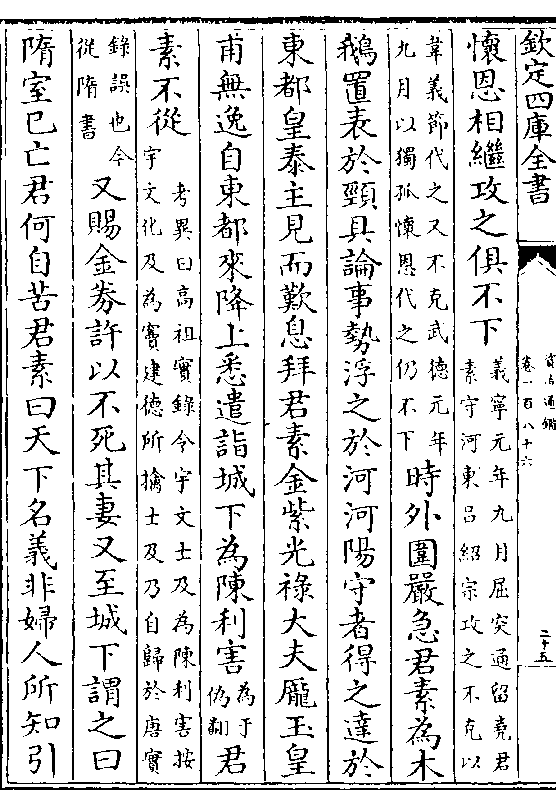 欽定四庫全書
資治通鑑
卷一百八十六
二十五
懷恩相繼攻之俱不下義寧元年九月屈突通留堯君
素守河東吕紹宗攻之不克以
韋義節代之又不克武德元年
九月以獨孤懷恩代之仍不下時外圍嚴急君素為木
鵝置表於頸具論事勢浮之於河河陽守者得之達於
東都皇泰主見而歎息拜君素金紫光祿大夫龐玉皇
甫無逸自東都來降上悉遣詣城下為陳利害為于
偽翻君
素不從考異曰高祖實錄今宇文士及為陳利害按
宇文化及為竇建德所擒士及乃自歸於唐實
錄誤也今
從隋書又賜金劵許以不死其妻又至城下謂之曰
隋室已亡君何自苦君素曰天下名義非婦人所知引